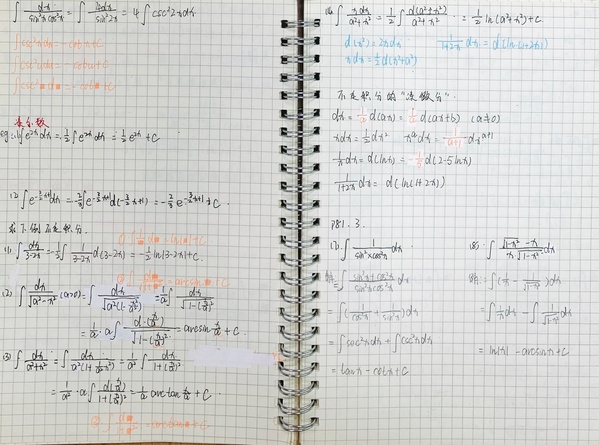 ∫ dx/(sin²x cos²x) = ∫ 4dx/sin²2x = 4∫ csc²2x dx
∫csc²xdx = -cotx+C
∫csc²udu = -cotu+C
∫csc²■d■ = -cot■+C
eg: (1) ∫e^{2x}dx = ½∫e^{2x}dx = ½e^{2x}+C
(2) ∫e^{-3/2x+1}dx = -⅔∫e^{-3/2x+1}d(-3/2x+1) = -⅔e^{-3/2x+1}+C
求下列不定积分.
(1) ∫dx/(3-2x) = -½∫1/(3-2x)d(3-2x) = -½ln|3-2x|+C.
(2) ∫dx/√(a²-x²) (a>0) = ∫dx/√(a²(1-x²/a²)) = 1/a∫dx/√(1-(x/a)²)
= 1/a·a∫d(x/a)/√(1-(x/a)²) = arcsin x/a + C.
③ ∫dx/(a²+x²) = ∫dx/(a²(1+x²/a²)) = 1/a²∫dx/(1+(x/a)²)
= 1/a²·a∫d(x/a)/(1+(x/a)²) = 1/a arctan x/a + C.
∫xdx/(a²+x²) = ½∫d(a²+x²)/(a²+x²) = ½ln(a²+x²)+C
d(x²) = 2xdx
1/(1+2x) dx = d(ln(1+2x))
xdx = ½d(x²+a²)
不定积分的"凑微分".
dx = 1/a d(ax) = 1/a d(ax+b) (a≠0)
xdx = ½dx² x^a dx = 1/(a+1) dx^{a+1}
1/x dx = d(lnx) = -1/5 d(2-5lnx)
1/(1+2x) dx = d(ln(1+2x))
P81. 3.
(7) ∫ 1/(sin²xcos²x) dx
解: = ∫ (sin²x+cos²x)/(sin²xcos²x) dx
= ∫(1/cos²x + 1/sin²x)dx
= ∫sec²xdx + ∫csc²xdx
= tanx - cotx + C
(8). ∫ (√(1-x²) - x)/(x√(1-x²)) dx
解: = ∫(1/x - 1/√(1-x²))dx
= ∫1/x dx - ∫dx/√(1-x²)
= ln|x| - arcsinx + C